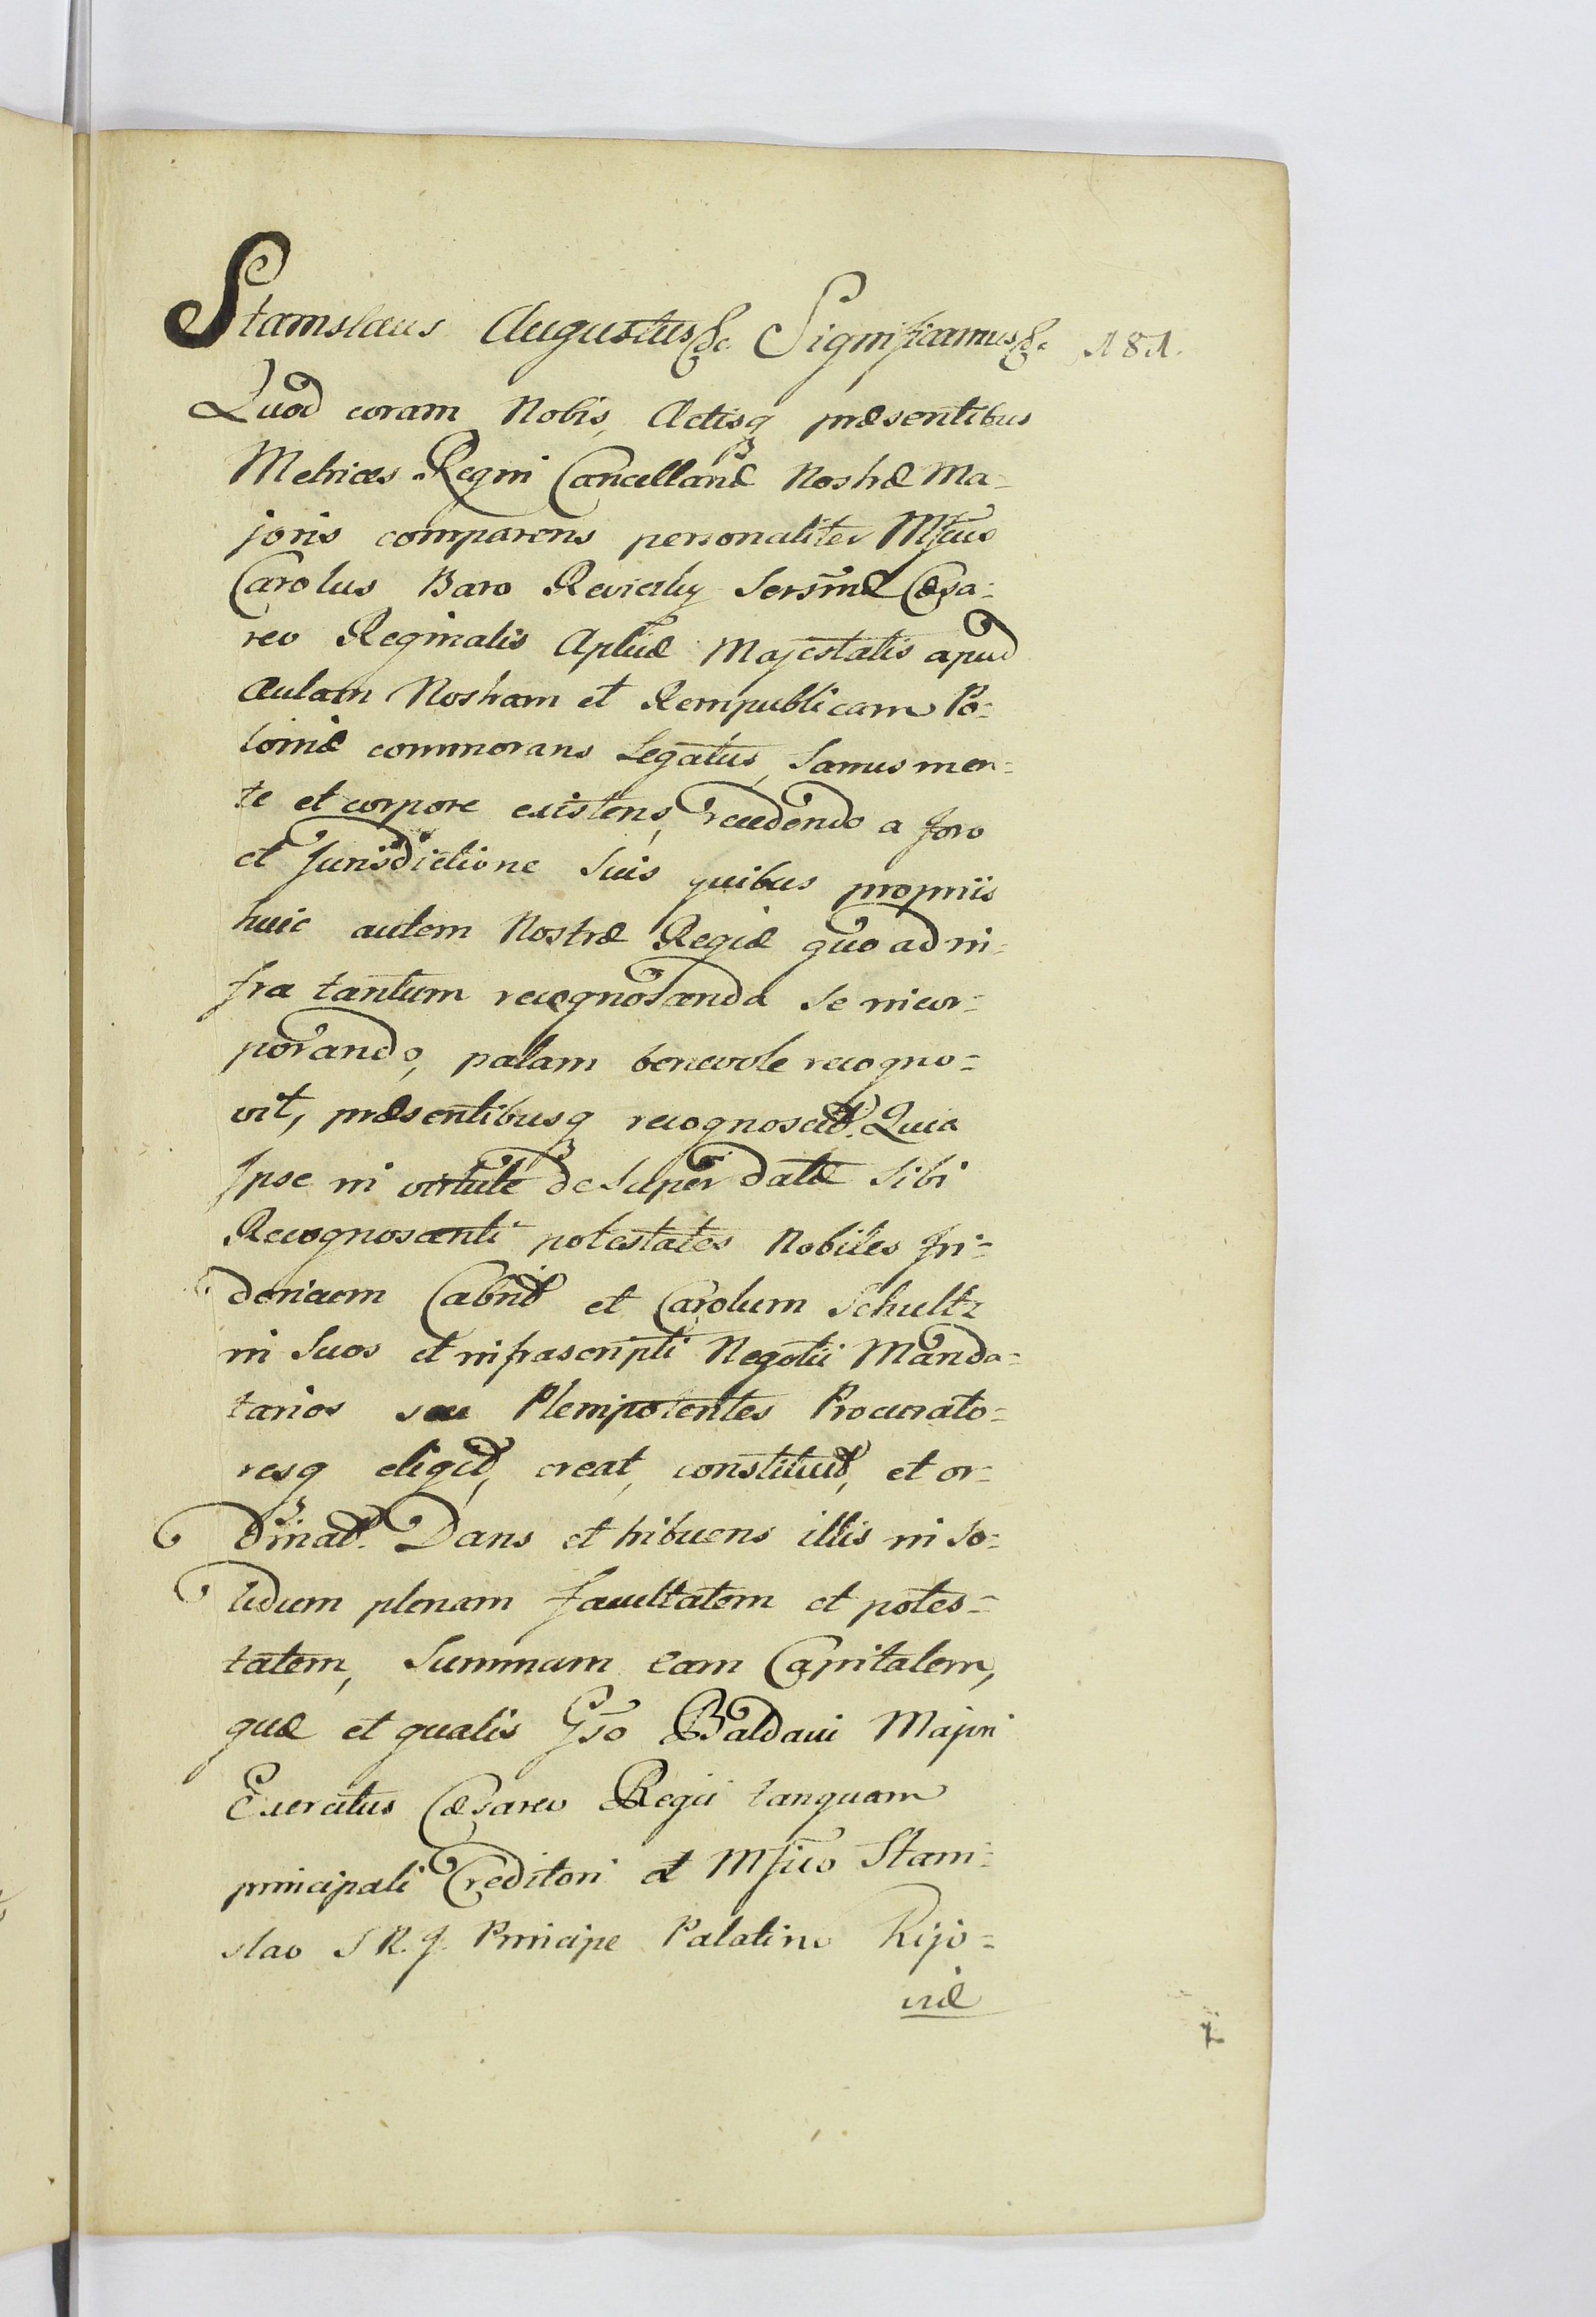 Stanislaus Augustus &c. Significamus &c. 181.
Quod coram Nobis, Actisq; præsentibus
Metrices Regni Cancellariæ Nostræ Ma-
joris comparens personaliter Mfcus
Carolus Baro Reviczky Sersmæ Cæsa-
reo Reginalis Apliæ Majestatis apud
Aulam Nostram et Rempublicam Po-
loniæ commorans Legatus, Sanus men-
te et corpore existens, recedendo a foro
et Jurisdictione Suis quibus propriis
huic autem Nostræ Regiæ quo ad in-
fra tantum recognoscenda se incor-
porando, palam benevole recogno-
vit, præsentibusq; recognoscit. Quia
Ipse in virtute de super datæ Sibi
Recognoscenti potestates Nobiles Fri-
dericum Cabrit et Carolum Schultz
in Suos et infrascripti Negotii Manda-
tarios seu Plenipotentes Procurato-
resq; eligit, creat, constituit, et or-
dinat. Dans et tribuens illis in So-
lidum plenam facultatem et potes-
tatem, Summam eam Capitalem,
quæ et qualis Gso Baldaui Majori
Exercitus Cæsareo Regii tanquam
principali Creditori et Mfico Stani-
slao S R. J. Principe Palatino Kijo-
viæ